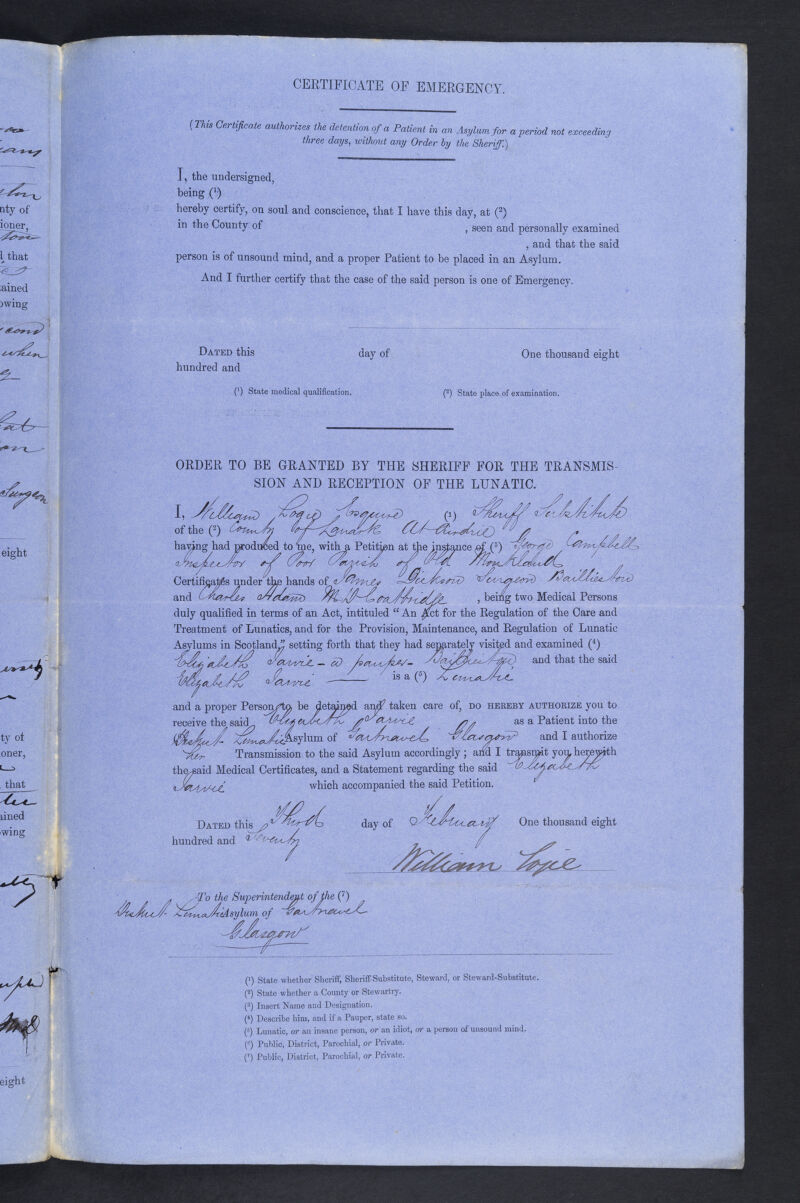 CERTIFICATE OF EMERGENCY.
(This Certificate authorizes the detention of a Patient in an Asylum for a period not exceeding
three days, without any Order by the Sheriff.)
I, the undersigned,
being (¹)
hereby certify, on soul and conscience, that I have this day, at (²)
in the County of , seen and personally examined
, and that the said
person is of unsound mind, and a proper Patient to be placed in an Asylum.
And I further certify that the case of the said person is one of Emergency.
DATED this day of One thousand eight
hundred and
(¹) State medical qualification. (²) State place of examination.
ORDER TO BE GRANTED BY THE SHERIFF FOR THE TRANSMIS-
SION AND RECEPTION OF THE LUNATIC.
I, William Logie Esquire (¹) Sheriff Substitute
of the (²) County of Lanark At Airdrie
having had produced to me, with a Petition at the instance of (³) George Campbell
Inspector of Poor Parish of Old Monkland
Certificates under the hands of James Dickson Surgeon Baillieston
and Charles Adam M.D Coatbridge , being two Medical Persons
duly qualified in terms of an Act, intituled “An Act for the Regulation of the Care and
Treatment of Lunatics, and for the Provision, Maintenance, and Regulation of Lunatic
Asylums in Scotland,” setting forth that they had separately visited and examined (⁴)
Elizabeth Jarvie - a pauper - Baillieston and that the said
Elizabeth Jarvie is a (⁵) Lunatic
and a proper Person to be detained and taken care of, DO HEREBY AUTHORIZE you to
receive the said Elizabeth Jarvie as a Patient into the
District Lunatic Asylum of Gartnavel Glasgow and I authorize
her Transmission to the said Asylum accordingly; and I transmit you herewith
the said Medical Certificates, and a Statement regarding the said Elizabeth
Jarvie which accompanied the said Petition.
DATED this Third day of February One thousand eight
hundred and Seventy
William Logie
To the Superintendent of the (⁷)
District Lunatic Asylum of Gartnavel
Glasgow
(¹) State whether Sheriff, Sheriff-Substitute, Steward, or Steward-Substitute.
(²) State whether a County or Stewartry.
(³) Insert Name and Designation.
(⁴) Describe him, and if a Pauper, state so.
(⁵) Lunatic, or an insane person, or an idiot, or a person of unsound mind.
(⁶) Public, District, Parochial, or Private.
(⁷) Public, District, Parochial, or Private.
nty of
ioner,
that
ained
owing
when
Surgeon
eight
ty of
oner,
that
ained
wing
eight